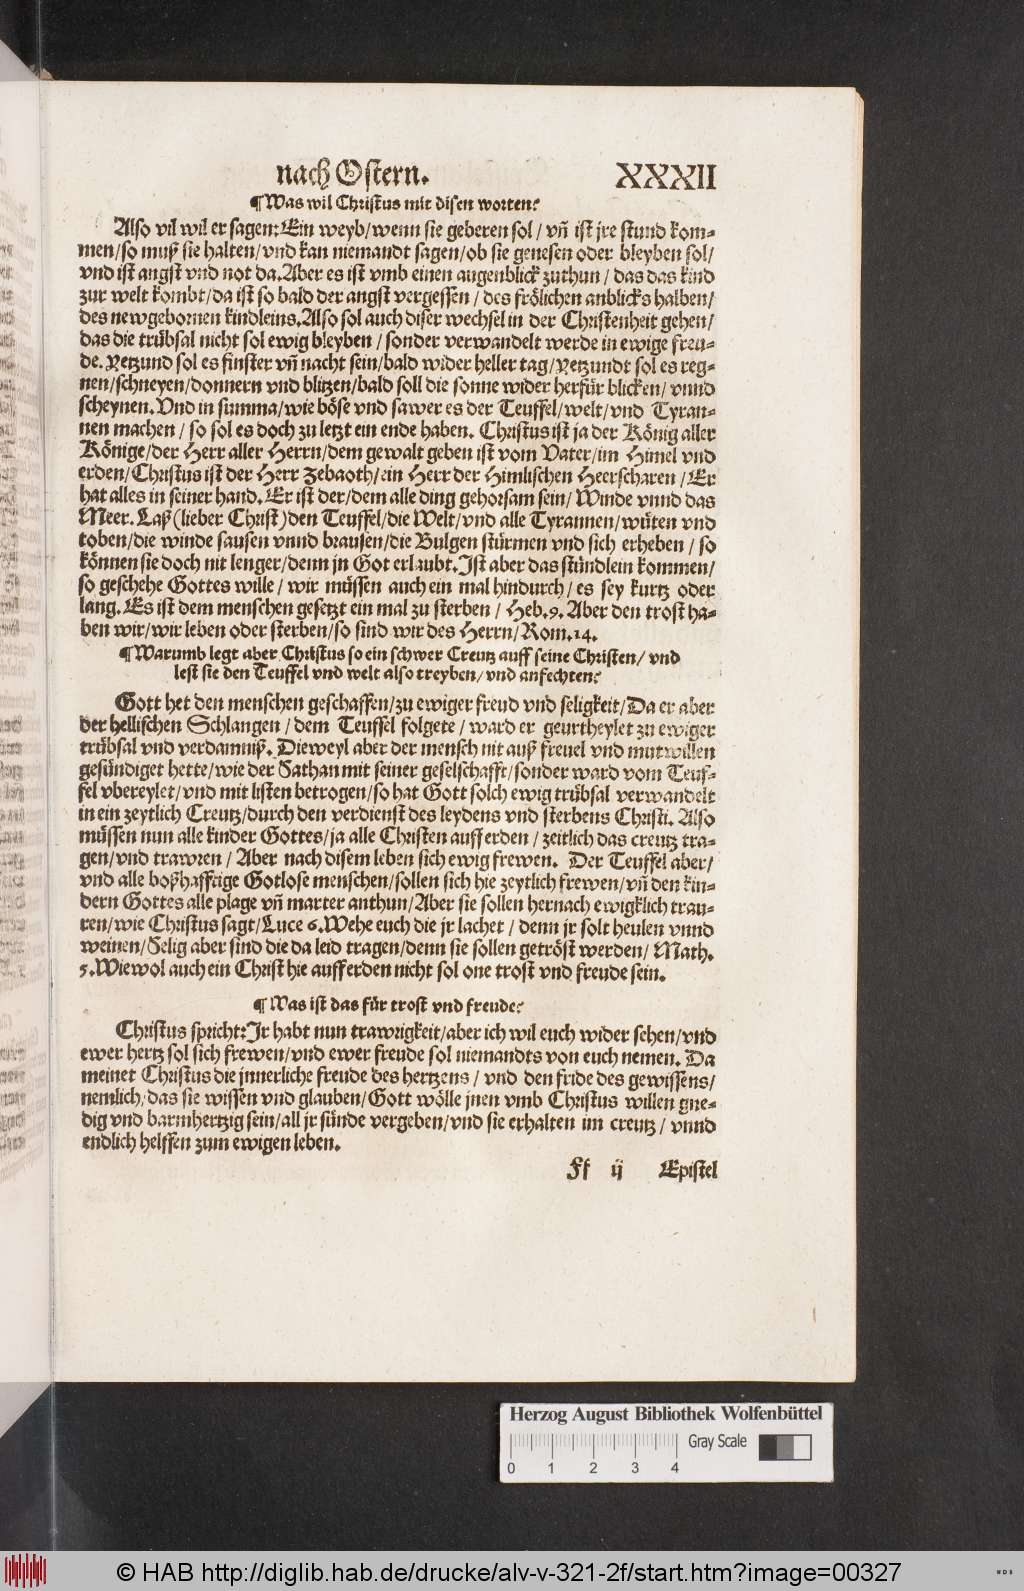 nach Ostern. XXXII
¶ Was wil Christus mit disen worten?
Also vil wil er sagen: Ein weyb/wenn sie geberen sol/ vñ ist jre stund kom-
men/so muß sie halten/vnd kan niemandt sagen/ob sie genesen oder bleyben sol/
vnd ist angst vnd not da. Aber es ist vmb einen augenblick zuthun/ das das kind
zur welt kombt/da ist so bald der angst vergessen/ des frölichen anblicks halben/
des newgebornen kindleins. Also sol auch diser wechsel in der Christenheit gehen/
das die trübsal nicht sol ewig bleyben/ sonder verwandelt werde in ewige freu-
de. Yetzund sol es finster vñ nacht sein/bald wider heller tag/Yetzundt sol es reg-
nen/schneyen/donnern vnd blitzen/bald soll die sonne wider herfür blicken/ vnnd
scheynen. Vnd in summa/wie böse vnd sawer es der Teuffel/welt/vnd Tyran-
nen machen/ so sol es doch zu letzt ein ende haben. Christus ist ja der König aller
Könige/der Herr aller Herrn/dem gewalt geben ist vom Vater/im Himel vnd
erden/Christus ist der Herr Zebaoth/ein Herr der Himlischen Heerscharen/ Er
hat alles in seiner hand. Er ist der/dem alle ding gehorsam sein/ Winde vnnd das
Meer. Laß (lieber Christ) den Teuffel/die Welt/vnd alle Tyrannen/wüten vnd
toben/die winde sausen vnnd brausen/die Bulgen stürmen vnd sich erheben/ so
können sie doch nit lenger/denn jn Got erlaubt. Ist aber das stündlein kommen/
so geschehe Gottes wille/ wir müssen auch ein mal hindurch/ es sey kurtz oder
lang. Es ist dem menschen gesetzt ein mal zu sterben/ Heb. 9. Aber den trost ha-
ben wir/wir leben oder sterben/so sind wir des Herrn/ Rom. 14.
¶ Warumb legt aber Christus so ein schwer Creutz auff seine Christen/ vnd
lest sie den Teuffel vnd welt also treyben/ vnd anfechten?
Gott het den menschen geschaffen/zu ewiger freud vnd seligkeit/Da er aber
der hellischen Schlangen/ dem Teuffel folgete/ ward er geurtheylet zu ewiger
trübsal vnd verdamnuß. Dieweyl aber der mensch nit auß freuel vnd mutwillen
gesündiget hette/wie der Sathan mit seiner geselschafft/sonder ward vom Teuf-
fel vbereylet/vnd mit listen betrogen/so hat Gott solch ewig trübsal verwandelt
in ein zeytlich Creutz/durch den verdienst des leydens vnd sterbens Christi. Also
müssen nun alle kinder Gottes/ja alle Christen auff erden/ zeitlich das creutz tra-
gen/vnd trawren/ Aber nach disem leben sich ewig frewen. Der Teuffel aber/
vnd alle boßhafftige Gotlose menschen/sollen sich hie zeytlich frewen/vñ den kin-
dern Gottes alle plage vñ marter anthun/Aber sie sollen hernach ewigklich trau-
ren/wie Christus sagt/Luce 6. Wehe euch die jr lachet/ denn jr solt heulen vnnd
weinen/Selig aber sind die da leid tragen/denn sie sollen getröst werden/ Math.
5. Wiewol auch ein Christ hie auff erden nicht sol one trost vnd freude sein.
¶ Was ist das für trost vnd freude?
Christus spricht: Ir habt nun trawrigkeit/aber ich wil euch wider sehen/vnd
ewer hertz sol sich frewen/vnd ewer freude sol niemandts von euch nemen. Da
meinet Christus die jnnerliche freude des hertzens/ vnd den fride des gewissens/
nemlich/das sie wissen vnd glauben/Gott wölle jnen vmb Christus willen gne-
dig vnd barmhertzig sein/all jr sünde vergeben/vnd sie erhalten im creutz/ vnnd
endlich helffen zum ewigen leben.
Ff ij Epistel
Herzog August Bibliothek Wolfenbüttel
Gray Scale
0 1 2 3 4
© HAB http://diglib.hab.de/drucke/alv-v-321-2f/start.htm?image=00327